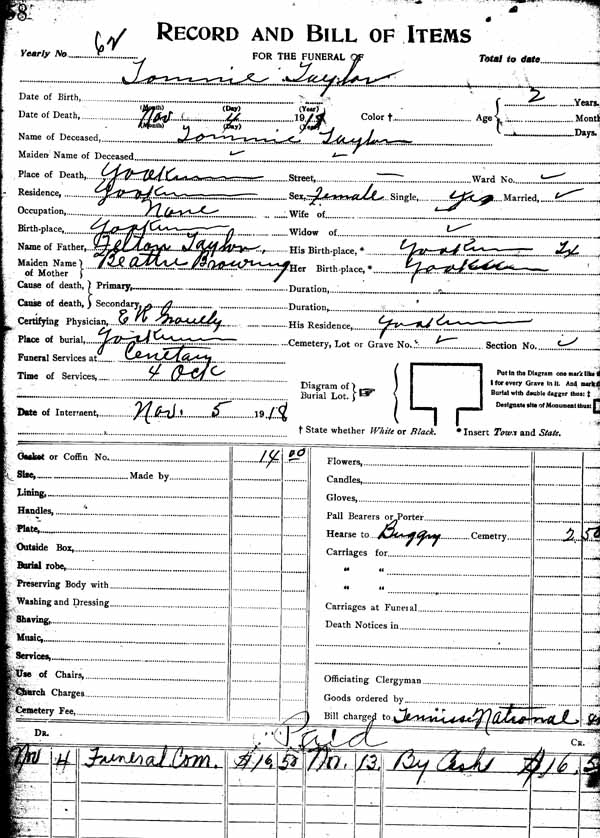 58
RECORD AND BILL OF ITEMS
Yearly No. 62 FOR THE FUNERAL OF Total to date
Tommie Taylor
Date of Birth, (Month) (Day) (Year) 2 Years.
Date of Death, Nov 4 1918 Color † Age Month
(Month) (Day) (Year) Days.
Name of Deceased, Tommie Taylor
Maiden Name of Deceased
Place of Death, Yoakum Street, Ward No.
Residence, Yoakum Sex, Female Single, Yes Married,
Occupation, None Wife of
Birth-place, Yoakum Widow of
Name of Father, Felton Taylor, His Birth-place, * Yoakum Tx
Maiden Name of Mother Beattie Browning Her Birth-place, * Yoakum
Cause of death, Primary, Duration,
Cause of death, Secondary, Duration,
Certifying Physician, E K His Residence, Yoakum
Place of burial, Yoakum Cemetery, Lot or Grave No. Section No.
Funeral Services at Cemetary
Time of Services, 4 Ock
Diagram of Burial Lot.
Put in the Diagram one mark like
for every Grave in it. And mark
Burial with double dagger thus: ‡
Designate site of Monument thus:
Date of Interment, Nov. 5 1918
† State whether White or Black. * Insert Town and State.
Casket or Coffin No. 14 00 Flowers,
Size, Made by Candles,
Lining, Gloves,
Handles, Pall Bearers or Porter
Plate, Hearse to Buggy Cemetry 2 50
Outside Box, Carriages for
Burial robe, " "
Preserving Body with " "
Washing and Dressing Carriages at Funeral
Shaving, Death Notices in
Music,
Services,
Use of Chairs, Officiating Clergyman
Church Charges Goods ordered by
Cemetery Fee, Bill charged to National
DR. Paid CR.
Nov 4 Funeral Com. $16 50 Nov. 13 By Cash $16. 5